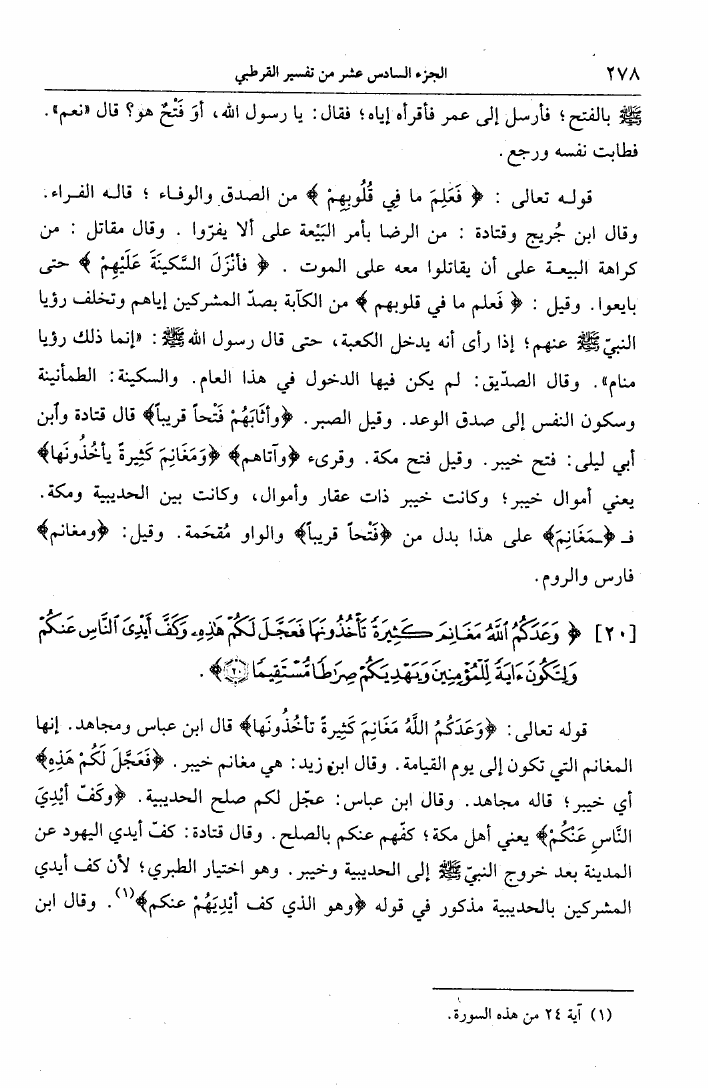 ٢٧٨ الجزء السادس عشر من تفسير القرطبي
ﷺ بالفتح؛ فأرسل إلى عمر فأقرأه إياه؛ فقال: يا رسول الله، أوَ فَتْحٌ هو؟ قال «نعم».
فطابت نفسه ورجع.
قوله تعالى : ﴿ فَعَلِمَ ما فِي قُلُوبِهِمْ ﴾ من الصدق والوفاء ؛ قاله الفراء.
وقال ابن جُريج وقتادة : من الرضا بأمر البَيْعة على ألا يفرّوا . وقال مقاتل : من
كراهة البيعة على أن يقاتلوا معه على الموت . ﴿ فأنْزَلَ السَّكِينَةَ عَلَيْهِمْ ﴾ حتى
بايعوا. وقيل : ﴿ فعلم ما في قلوبهم ﴾ من الكآبة بصدّ المشركين إياهم وتخلف رؤيا
النبيّ ﷺ عنهم؛ إذا رأى أنه يدخل الكعبة، حتى قال رسول الله ﷺ: «إنما ذلك رؤيا
منام». وقال الصدّيق: لم يكن فيها الدخول في هذا العام. والسكينة: الطمأنينة
وسكون النفس إلى صدق الوعد. وقيل الصبر. ﴿وأثَابَهُمْ فَتْحاً قريباً﴾ قال قتادة وٱبن
أبي ليلى: فتح خيبر. وقيل فتح مكة. وقرىء ﴿وآتاهم﴾ ﴿وَمَغَانِمَ كَثِيرةً يأخُذُونَها﴾
يعني أموال خيبر؛ وكانت خيبر ذات عقار وأموال، وكانت بين الحديبية ومكة.
فـ ﴿ـمَغَانِمَ﴾ على هذا بدل من ﴿فَتْحاً قريباً﴾ والواو مُقحَمة. وقيل: ﴿ومغانم﴾
فارس والروم.
[٢٠] ﴿ وَعَدَكُمُ ٱللَّهُ مَغَانِمَ كَثِيرَةً تَأْخُذُونَهَا فَعَجَّلَ لَكُمْ هَٰذِهِۦ وَكَفَّ أَيْدِىَ ٱلنَّاسِ عَنكُمْ
وَلِتَكُونَ ءَايَةً لِّلْمُؤْمِنِينَ وَيَهْدِيَكُمْ صِرَٰطًا مُّسْتَقِيمًا ۝٢٠﴾ .
قوله تعالى: ﴿وَعَدَكُمُ اللَّهُ مَغَانِمَ كَثِيرَةً تأخُذُونَها﴾ قال ابن عباس ومجاهد. إنها
المغانم التي تكون إلى يوم القيامة. وقال ابن زيد: هي مغانم خيبر. ﴿فَعَجَّلَ لَكُمْ هَذِهِ﴾
أي خيبر؛ قاله مجاهد. وقال ابن عباس: عجّل لكم صلح الحديبية. ﴿وكَفّ أيْدِيَ
النَّاسِ عَنْكُمْ﴾ يعني أهل مكة؛ كفّهم عنكم بالصلح. وقال قتادة: كفّ أيدي اليهود عن
المدينة بعد خروج النبيّ ﷺ إلى الحديبية وخيبر. وهو اختيار الطبري؛ لأن كف أيدي
المشركين بالحديبية مذكور في قوله ﴿وهو الذي كف أيْدِيَهُمْ عنكم﴾(١). وقال ابن
(١) آية ٢٤ من هذه السورة.